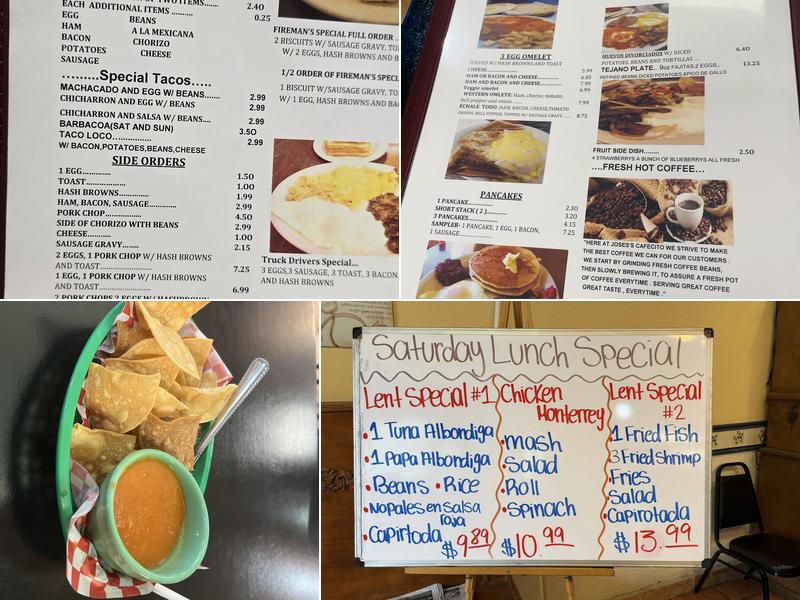 EACH ADDITIONAL ITEMS 2.40
0.25
EGG BEANS
HAM A LA MEXICANA
BACON CHORIZO
POTATOES CHEESE
SAUSAGE
.........Special Tacos.....
MACHACADO AND EGG W/ BEANS....... 2.99
CHICHARRON AND EGG W/ BEANS 2.99
CHICHARRON AND SALSA W/ BEANS.... 2.99
BARBACOA(SAT AND SUN) 3.50
TACO LOCO............... 2.99
W/ BACON,POTATOES,BEANS,CHEESE
SIDE ORDERS
1 EGG............. 1.50
TOAST............... 1.00
HASH BROWNS............. 1.99
HAM, BACON, SAUSAGE............ 2.99
PORK CHOP................. 4.50
SIDE OF CHORIZO WITH BEANS 2.99
CHEESE............. 1.00
SAUSAGE GRAVY........ 2.15
2 EGGS, 1 PORK CHOP W/ HASH BROWNS
AND TOAST 7.25
1 EGG, 1 PORK CHOP W/ HASH BROWNS
AND TOAST 6.99
2 PORK CHOPS 2 EGGS W/ HASHBROWN
FIREMAN'S SPECIAL FULL ORDER ..
2 BISCUITS W/ SAUSAGE GRAVY,
W/ 2 EGGS, HASH BROWNS AND
1/2 ORDER OF FIREMAN'S SPECIAL
1 BISCUIT W/SAUSAGE GRAVY,
W/ 1 EGG, HASH BROWNS AND
Truck Drivers Special...
3 EGGS,3 SAUSAGE, 3 TOAST, 3 BACON
AND HASH BROWNS
3 EGG OMELET
SERVED W/ HASH BROWNS AND TOAST
CHEESE 5.99
HAM OR BACON AND CHEESE 6.85
HAM AND BACON AND CHEESE 7.99
Veggie omelet 6.99
WESTERN OMLETE: Ham, cheese, tomato,
bell pepper and onion 7.99
ECHALE TODO :HAM, BACON, CHEESE,TOMATO
ONIONS, BELL PEPPER, TOPPED W/ SAUSAGE GRAVY 8.75
PANCAKES
1 PANCAKE 2.30
SHORT STACK ( 2 ) 3.20
3 PANCAKES 4.15
SAMPLER- 1 PANCAKE, 1 EGG, 1 BACON, 7.25
1 SAUSAGE
HUEVOS DIVORCIADOS W/ DICED 6.40
POTATOES, BEANS AND TORTILLAS.....
TEJANO PLATE.. 9oz FAJITAS,2 EGGS,. 13.25
REFRIED BEANS,DICED POTATOES,&PICO DE GALLO
FRUIT SIDE DISH 2.50
4 STRAWBERRYS A BUNCH OF BLUEBERRYS ALL FRESH
....FRESH HOT COFFEE...
"HERE AT JOSES'S CAFECITO WE STRIVE TO MAKE
THE BEST COFFEE WE CAN FOR OUR CUSTOMERS .
WE START BY GRINDING FRESH COFFEE BEANS,
THEN SLOWLY BREWING IT, TO ASSURE A FRESH POT
OF COFFEE EVERYTIME . SERVING GREAT COFFEE
GREAT TASTE , EVERYTIME ."
Saturday Lunch Special
Lent Special #1
•1 Tuna Albondiga
•1 Papa Albondiga
•Beans •Rice
•Nopales en Salsa
roja
•Capirtoda
$9.89
Chicken
Monterrey
•mash
•Salad
•Roll
•Spinach
$10.99
Lent Special
#2
•1 Fried Fish
•3 Fried Shrimp
•Fries
•Salad
•Capirotada
$13.99